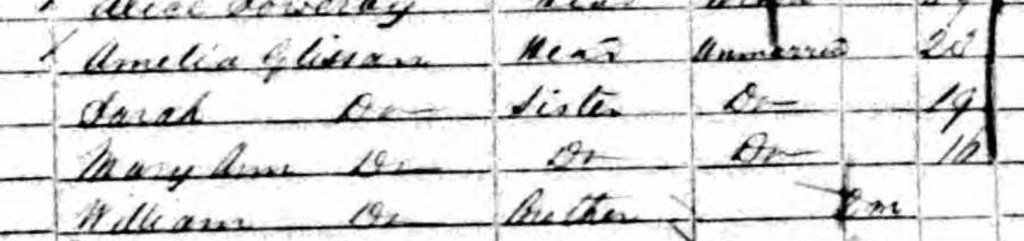 Alice Sowerby Head
Amelia Glissan Head Unmarried 23
Sarah Do Sister Do 19
Mary Ann Do Do Do 16
William Do Brother 2 m